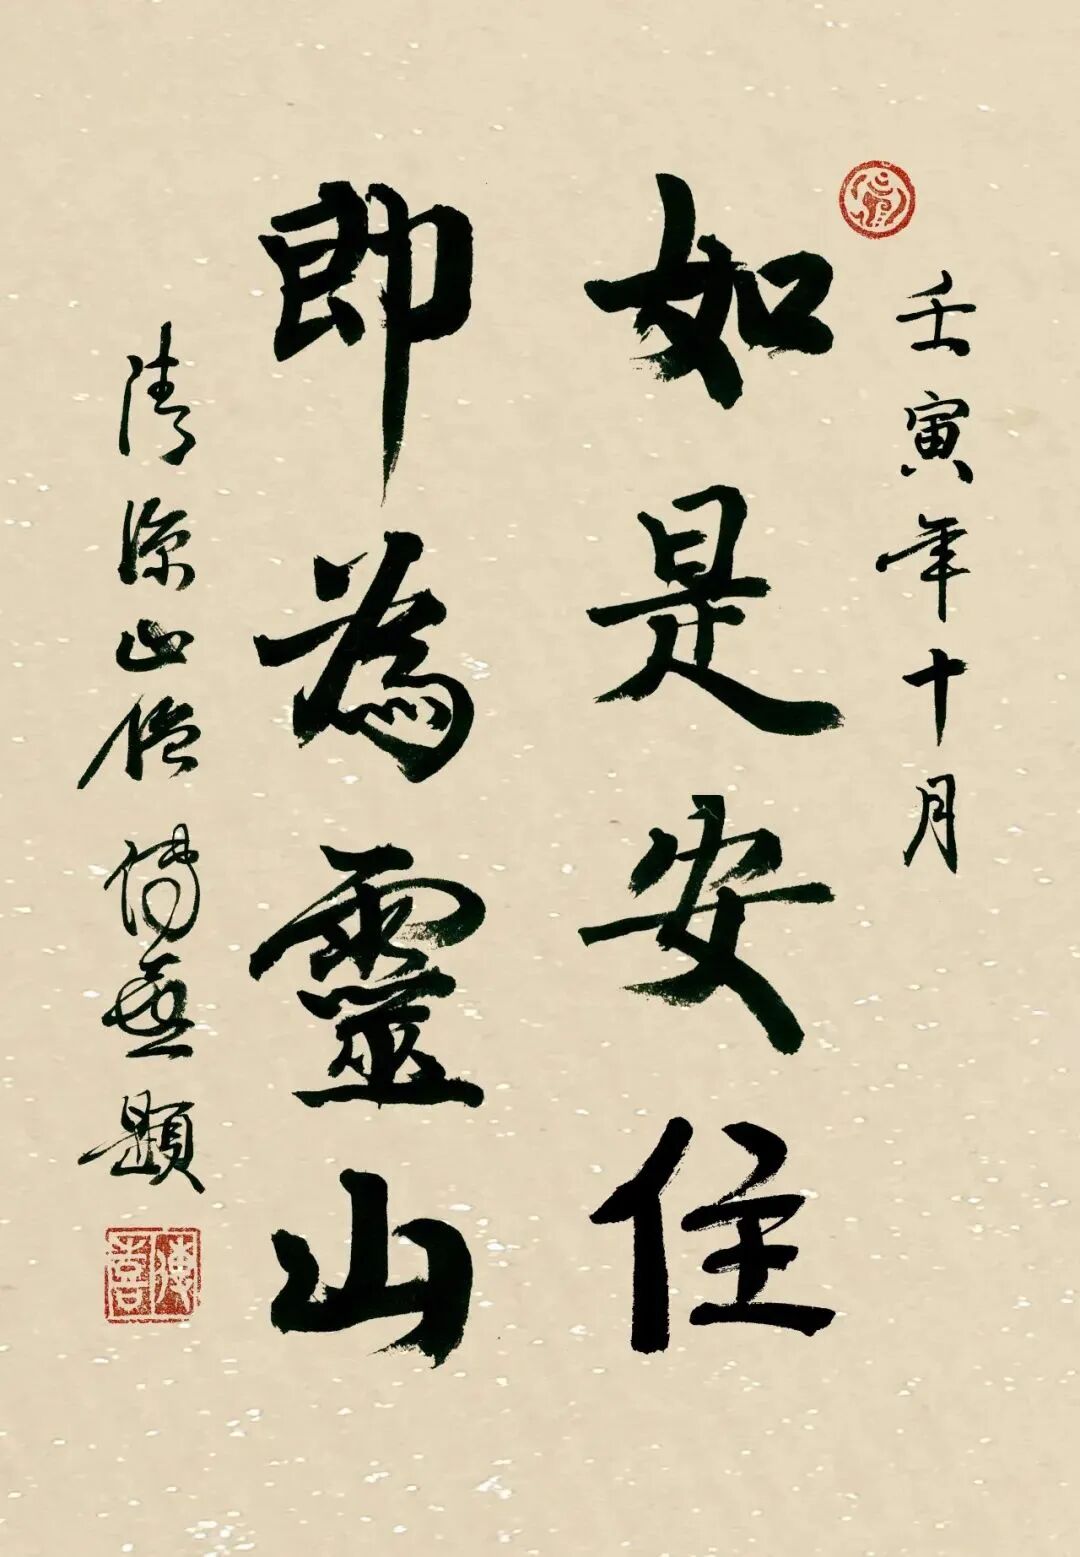 壬寅年十月
如是安住
即為靈山
清涼山僧 傳喜題
傳喜